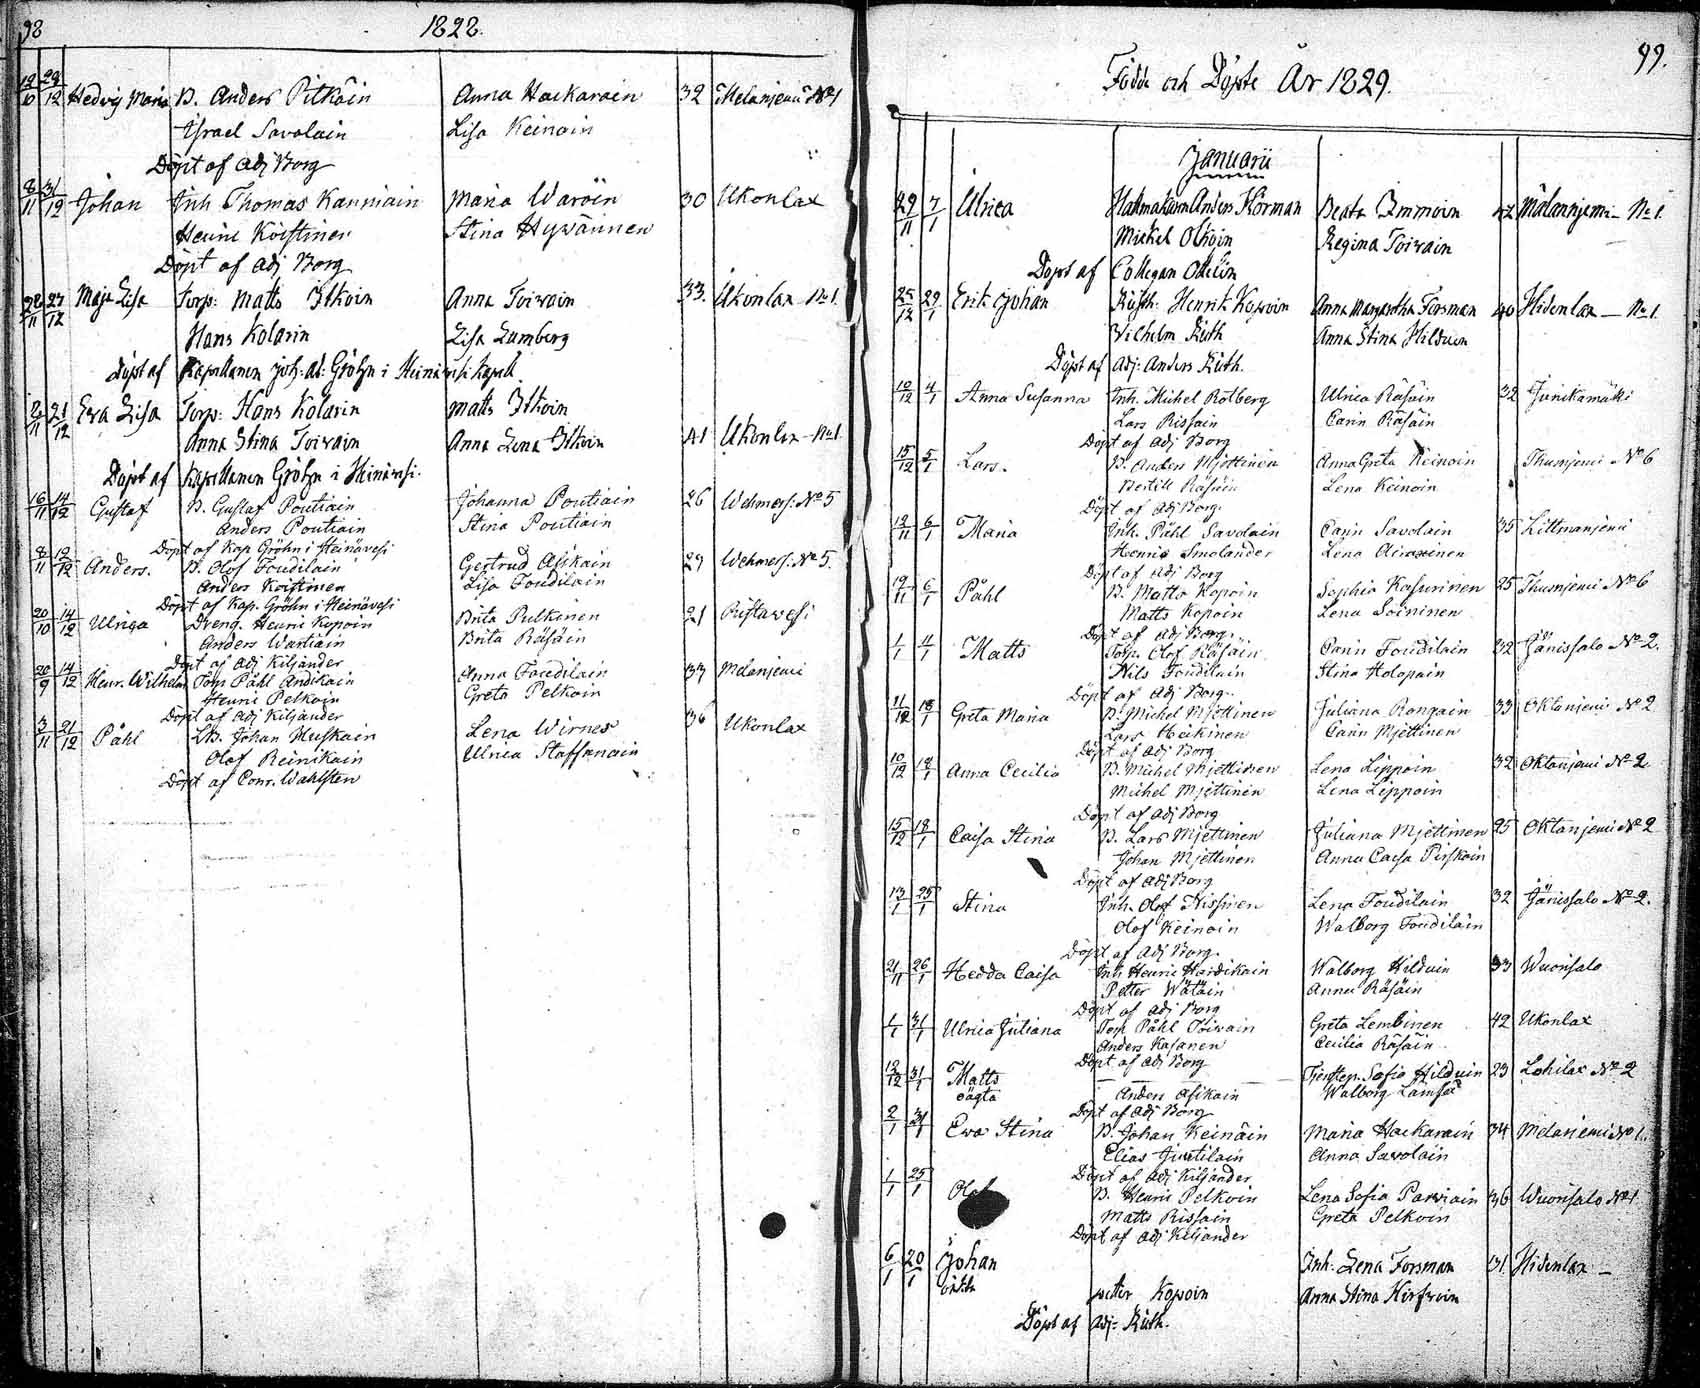 98
1828.
19/10 29/12 Hedvig Maria B. Anders Pitkäin Anna Hackarain 32 Melanjemi No 1
Israel Savolain Lisa Keinoin
Döpt af adj Borg
8/11 31/12 Johan Inh Thomas Kanniain Maria Waroin 30 Ukonlax
Henric Koistinen Stina Hywärinen
Döpt af adj Borg
27/12 Maja Lisa Torp: Matts Itkoin Anna Toivain 33. Ukonlax No 1.
Hans Kolarin Lisa Lumberg
Döpt af Kapellanen Joh: Ad: Gröhn i Heinävesi Kapell
2/11 21/12 Eva Lisa Torp: Hans Kolarin Matts Itkoin
Anna Stina Toivain Anna Lena Itkoin 41 Ukonlax No 1
Döpt af Kapellanen Gröhn i Heinävesi.
16/11 14/12 Gustaf B. Gustaf Poutiain Johanna Poutiain 26 Wehmers: No 5
Anders Poutiain Stina Poutiain
Döpt af Kap Gröhn i Heinävesi
8/11 12/12 Anders. B. Olof Toudilain Gertrud Asikain 29 Wehmers: No 5.
Anders Koistinen Lisa Toudilain
Döpt af Kap. Gröhn i Heinävesi
20/10 14/12 Ulrica Dreng. Henric Kopoin Brita Pulkinen 21 Ristavesi
Anders Wartiain Brita Räsäin
Döpt af adj Kiljander
20/9 14/12 Henr. Wilhelm Torp Påhl Andikain Anna Toudilain 33 Melanjemi
Henric Pelkoin Greta Pelkoin
Döpt af adj Kiljander
3/11 21/12 Påhl LB. Johan Muskain Lena Wirnes 36 Ukonlax
Olof Reinikain Ulrica Staffanain
Döpt af Conr. Wahlsten
99.
Födde och Döpte År 1829.
Januarii
29/11 7/1 Ulrica Hattmakaren Anders Hörman Beata Immoin 42 Mälanniemi No 1.
Michel Olkoin Regina Toivain
Döpt af Collegan Ottelin
25/12 29/1 Erik Johan Rusth: Henrik Kopoin Anna Margaretha Forsman 40 Hidenlax — No 1.
Wilhelm Ruth Anna Stina Hilduin
Döpt af Adj: Anders Ruth.
10/12 4/1 Anna Susanna Inh. Michel Rotberg Ulrica Räsäin 32 Junikamäki
Lars Rissain Carin Räsäin
Döpt af adj Borg
15/12 5/1 Lars. B. Anders Mjettinen Anna Greta Keinoin Thusnjemi No 6
Bertill Räsäin Lena Keinoin
Döpt af adj Borg.
12/11 6/1 Maria Inh. Påhl Savolain Carin Savolain 35 Littmanjemi
Henric Smolander Lena
Döpt af adj Borg
19/11 6/1 Påhl B. Matts Kopoin Sophia Kasurinen 25 Thusnjemi No 6
Matts Kopoin Lena Soininen
Döpt af adj Borg.
1/1 11/1 Matts Torp. Olof Räsäin Carin Toudilain 32 Jänissalo No 2.
Nils Toudilain Stina Holopain
Döpt af adj Borg.
11/12 18/1 Greta Maria B. Michel Mjettinen Juliana Rongain 33 Oktanjemi No 2
Lars Heikinen Carin Mjettinen
Döpt af adj Borg
10/12 18/1 Anna Cecilia B. Michel Mjettinen Lena Lippoin 32 Oktanjemi No 2
Michel Mjettinen Lena Lippoin
Döpt af adj Borg
15/12 18/1 Caisa Stina B. Lars Mjettinen Juliana Mjettinen 25 Oktanjemi No 2
Johan Mjettinen Anna Caisa Pirskoin
Döpt af adj Borg
13/1 25/1 Stina Inh. Olof Nissinen Lena Toudilain 32 Jänissalo No 2.
Olof Keinoin Walborg Toudilain
Döpt af adj Borg.
21/11 26/1 Hedda Caisa Inh Henric Hardikain Walborg Hilduin 33 Wuorisalo
Petter Wätäin Anna Räsäin
Döpt af adj Borg
1/1 31/1 Ulrica Juliana Torp Påhl Toivain Greta Lembinen 42 Ukonlax
Anders Kasanen Cecilia Räsäin
Döpt af adj Borg
12/12 31/1 Matts Tjenstep. Sofia Hilduin 23 Lohilax No 2
oägta Anders Asikain Walborg Lämsä
Döpt af adj Borg
2/1 31/1 Eva Stina B. Johan Keinäin Maria Hackarain 34 Melanjemi No 1.
Elias Juntilain Anna Savolain
Döpt af adj Kiljander
1/1 25/1 Olof B. Henric Pelkoin Lena Sofia Parviain 36 Wuorisalo No 1
Matts Rissain Greta Pelkoin
Döpt af adj Kiljander
6/1 20/1 Johan Inh: Lena Forsman 31 Hidenlax —
oäkta petter Kopoin Anna Stina Hirfvoin
Döpt af Adj: Ruth.